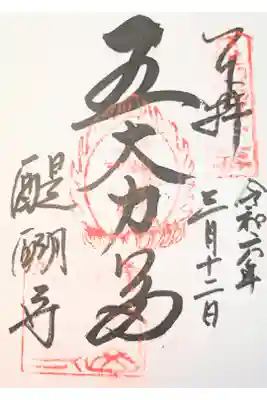 奉拝
令和 年
三月十二日
五大力尊
醍醐寺